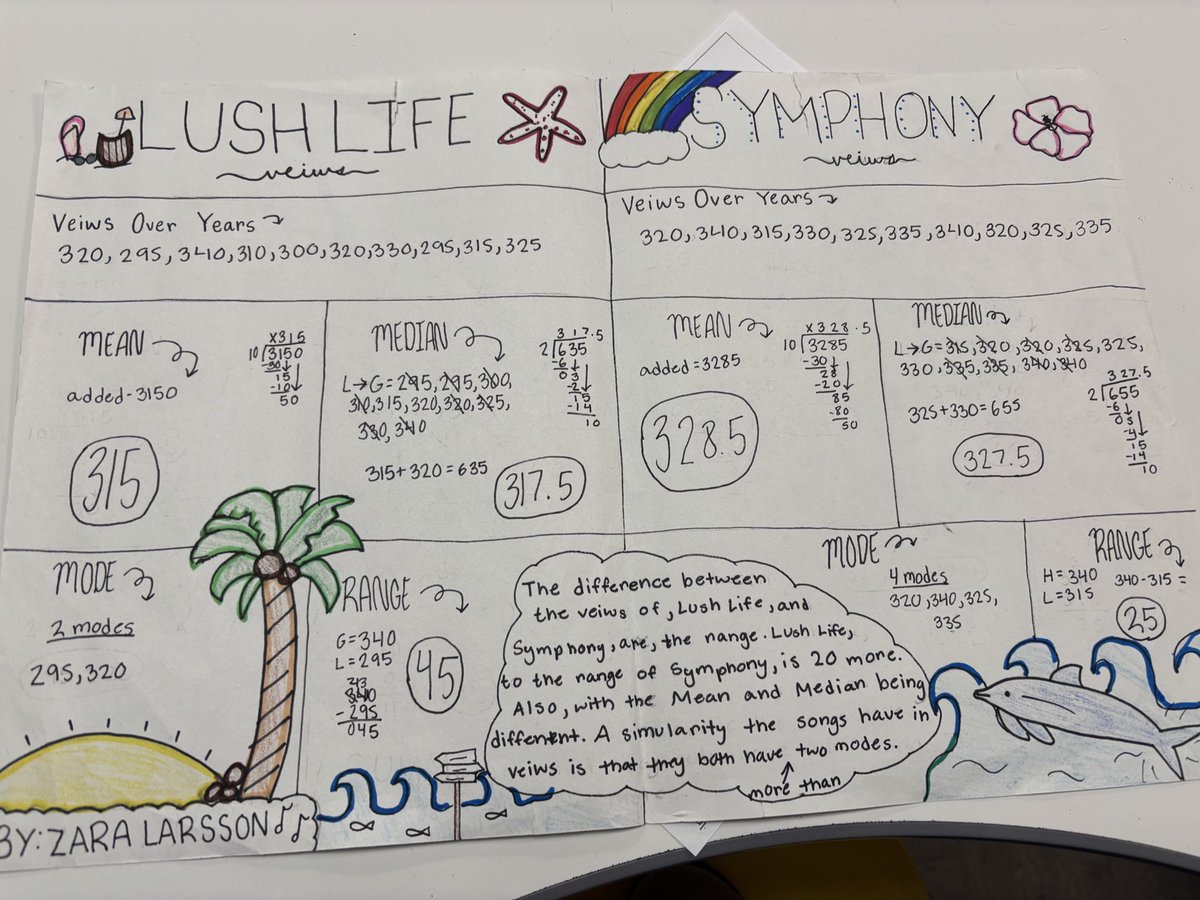 LUSH LIFE
veiws
Veiws Over Years
320, 295, 340, 310, 300, 320, 330, 295, 315, 325
MEAN
added - 3150
x315
10√3150
-30
15
-10
50
315
MEDIAN
L→G = 295, 295, 300,
310, 315, 320, 320, 325,
330, 340
315+320=635
317.5
2√635
-6
03
-2
15
-14
10
317.5
MODE
2 modes
295, 320
RANGE
G=340
L=295
340
-295
045
45
BY: ZARA LARSSON
SYMPHONY
veiws
Veiws Over Years
320, 340, 315, 330, 325, 335, 340, 320, 325, 335
MEAN
added = 3285
x328.5
10√3285
-30
28
-20
85
-80
50
328.5
MEDIAN
L→G = 315, 320, 320, 325, 325,
330, 335, 335, 340, 340
325+330=655
327.5
2√655
-6
05
-4
15
-14
10
327.5
MODE
4 modes
320, 340, 325,
335
RANGE
H=340
L=315
340-315=
25
The difference between
the veiws of, Lush Life, and
Symphony, are, the range. Lush Life,
to the range of Symphony, is 20 more.
Also, with the Mean and Median being
different. A simularity the songs have in
veiws is that they both have two modes.
more than